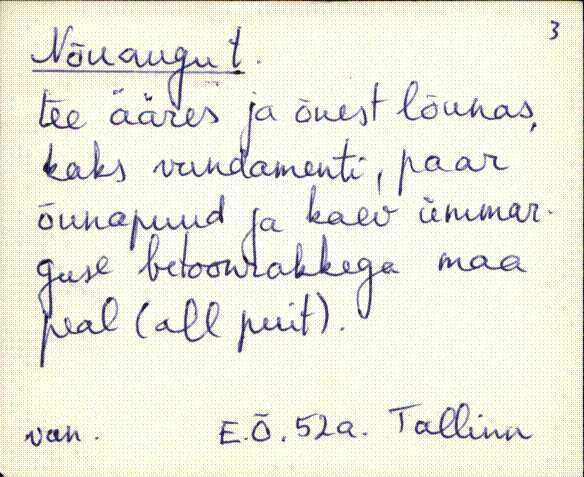 3
Nõuaugu t.
tee ääres ja õuest lõunas,
kaks vundamenti, paar
õunapuud ja kaev ümmar-
guse betoonrakkega maa
peal (all puit).
van. E.Õ. 52a. Tallinn